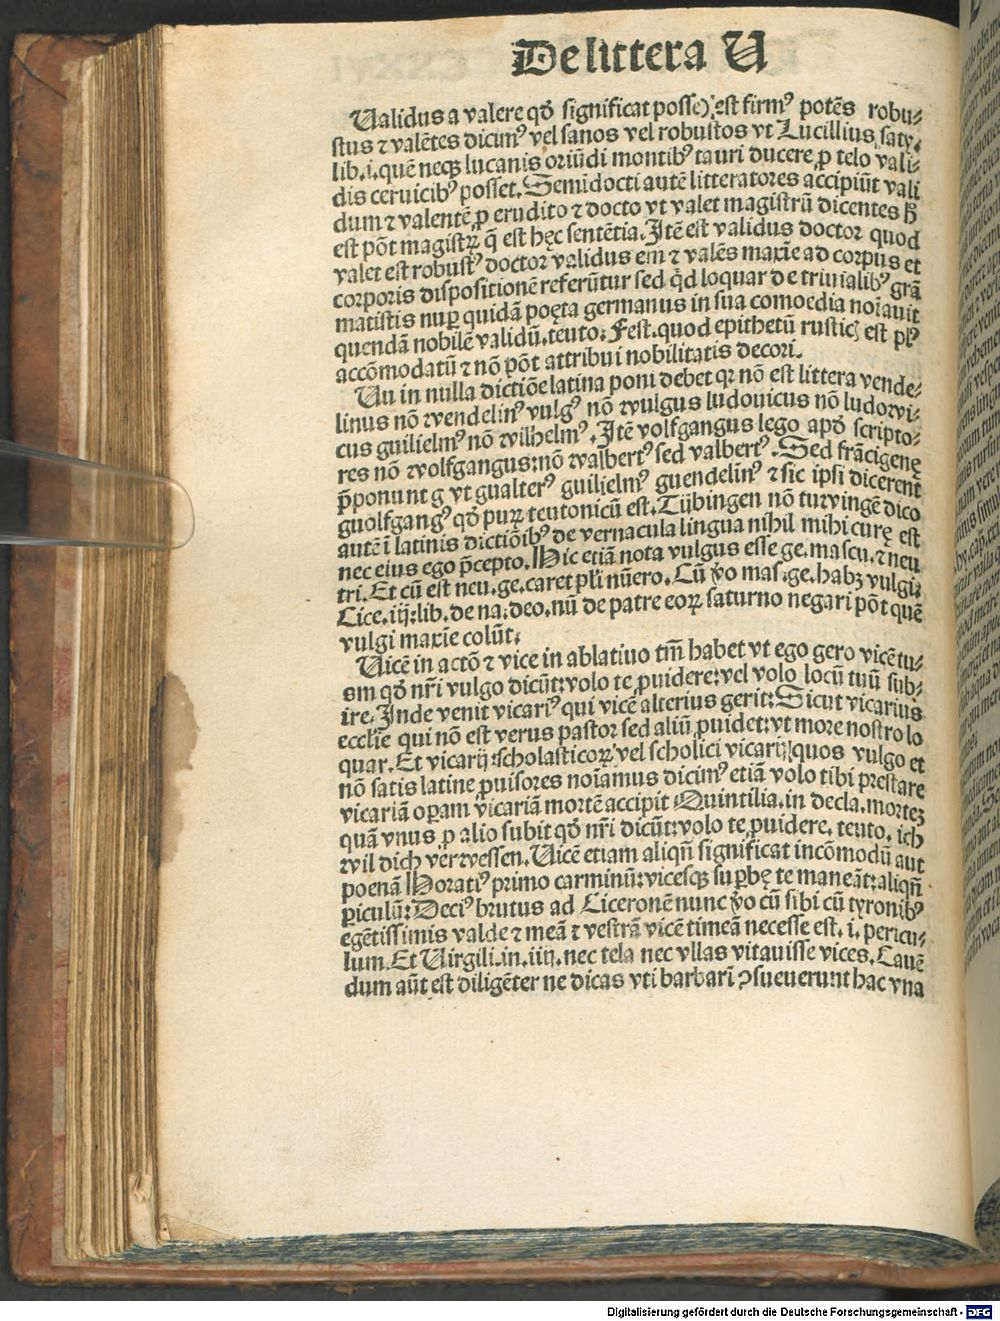 De littera U
Ualidus a valere qđ significat posse) est firmꝰ potēs robu-
stus ⁊ valētes dicimꝰ vel sanos vel robustos vt Lucillius saty.
lib.i.quē neqꝫ lucanis oriūdi montibꝰ tauri ducere ꝓ telo vali-
dis ceruicibꝰ posset. Semidocti autē litteratores accipiūt vali
dum ⁊ valentē ꝓ erudito ⁊ docto vt valet magistrū dicentes ħ
est pōt magistrꝝ q̄ est hęc sentētia. Itē est validus doctor quod
valet est robustꝰ doctor validus em̄ ⁊ valēs maxīe ad corpus et
corporis dispositionē referūtur sed qd̄ loquar de triuialibꝰ grā
matistis nuꝑ quidā poęta germanus in sua comoedia noīauit
quendā nobilē validū.teuto: Fest.quod epithetū rusticꝭ est plꝰ
accōmodatū ⁊ nō pōt attribui nobilitatis decori.
Uu in nulla dictiōe latina poni debet qꝛ nō est littera vende-
linus nō wendelinꝰ vulgꝰ nō wulgus ludouicus nō ludowi-
cus guilielmꝰ nō wilhelmꝰ. Itē volfgangus lego apđ scripto-
res nō wolfgangus: nō walbertꝰ sed valbertꝰ. Sed frācigenę
p̄ponunt g vt gualterꝰ guilielmꝰ guendelinꝰ ⁊ sic ipsi dicerent
guolfgangꝰ qđ purꝝ teutonicū est. Tübingen nō tuwingē dico
autē ī latinis dictiōibꝰ de vernacula lingua nihil mihi curę est
nec eius ego p̄cepto. Hic etiā nota vulgus esse ge.mascu.⁊ neu
tri. Et cū est neu.ge.caret pl̄i nūero. Cū ꝟo mas.ge.habꝫ vulgi:
Cice.iij: lib.de na: deo.nū de patre eorꝝ saturno negari pōt quē
vulgi maxīe colūt:
Uicē in actō ⁊ vice in ablatiuo tm̄ habet vt ego gero vicē tu-
am qđ nr̄i vulgo dicūt: volo te ꝓuidere: vel volo locū tuū sub-
ire. Inde venit vicariꝰ qui vicē alterius gerit: Sicut vicarius
ecclīe qui nō est verus pastor sed aliū ꝓuidet: vt more nostro lo
quar. Et vicarij scholasticorꝝ vel scholici vicarij quos vulgo et
nō satis latine ꝓuisores noīamus dicimꝰ etiā volo tibi prestare
vicariā oꝑam vicariā mortē accipit Quintilia.in decla.morteꝫ
quā vnus ꝓ alio subit qđ nr̄i dicūt: volo te ꝓuidere. teuto. ich
wil dich verwessen. Uicē etiam aliqn̄ significat incōmodū aut
poenā Horatiꝰ primo carminū: vicesqꝫ suꝑbę te maneāt: aliqn̄
ꝑiculū: Deciꝰ brutus ad Ciceronē nunc ꝟo cū sibi cū tyronibꝰ
egētissimis valde ⁊ meā ⁊ vestrā vicē timeā necesse est. i. pericu-
lum. Et Uirgili.in.iiij. nec tela nec vllas vitauisse vices. Cauē
dum aūt est diligēter ne dicas vti barbari ꝯsueuerunt hac vna
Digitalisierung gefördert durch die Deutsche Forschungsgemeinschaft - DFG